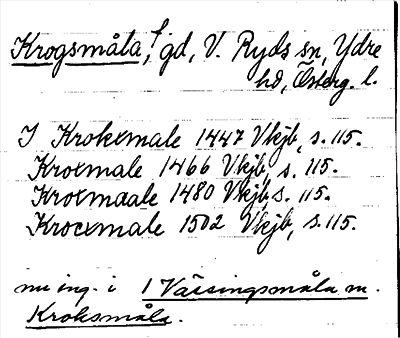 Krogsmåla, f. gd, V. Ryds sn, Ydre
hd, Österg. l.
I Krokxmale 1447 Vkjb, s. 115.
Kroxmale 1466 Vkjb, s. 115.
Kroxmaale 1480 Vkjb s. 115.
Krocxmale 1502 Vkjb, s. 115.
nu ing. i 1 Väisingsmåla m.
Kroksmåla.